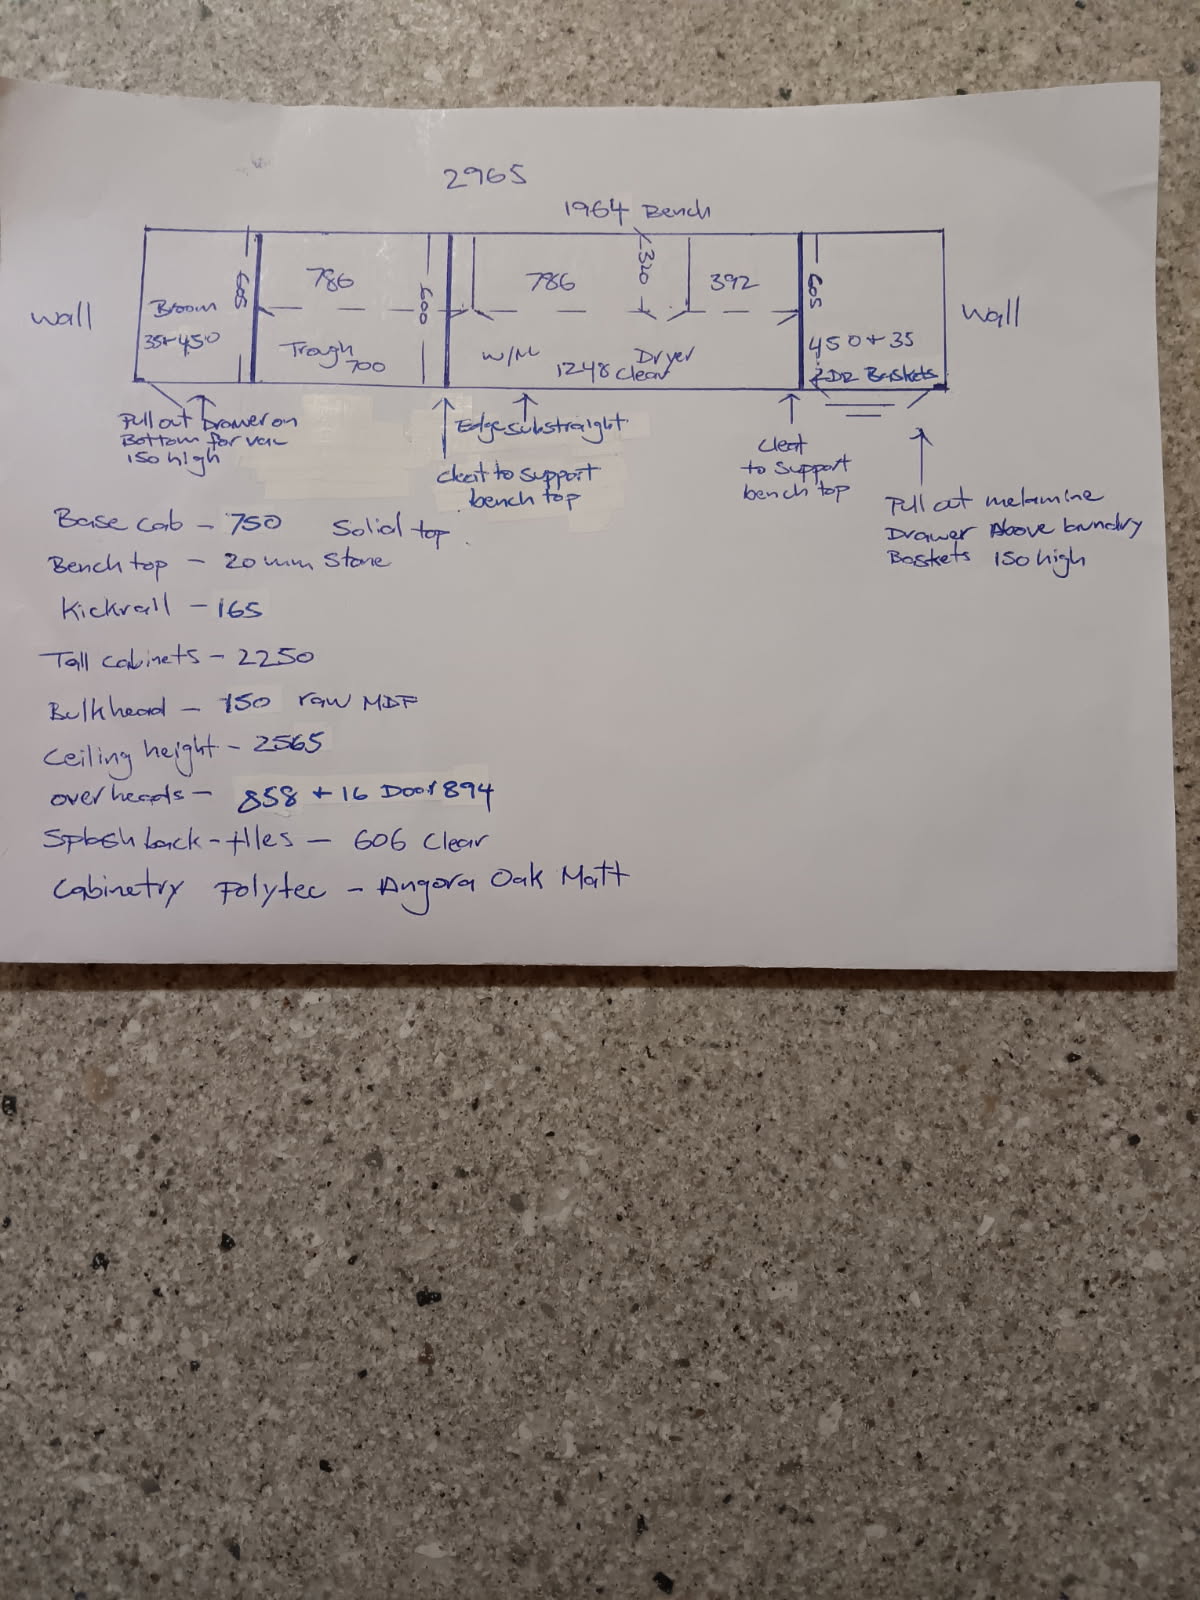 2965
1964 Bench
605
786
600
786
320
392
605
wall
Broom
35+450
Trough
700
W/M
Dryer
1248 Clear
450+35
2DR Baskets
Wall
Pull out Drawer on
Bottom for vac
150 high
Edge substraight
Cleat to support
bench top
Cleat
to support
bench top
Pull out melamine
Drawer Above laundry
Baskets 150 high
Base cab - 750 Solid top.
Bench top - 20mm Stone
Kickrall - 165
Tall cabinets - 2250
Bulkhead - 150 raw MDF
Ceiling height - 2565
overheads - 858 + 16 Door 894
Splash back - tiles - 606 Clear
Cabinetry Polytec - Angora Oak Matt